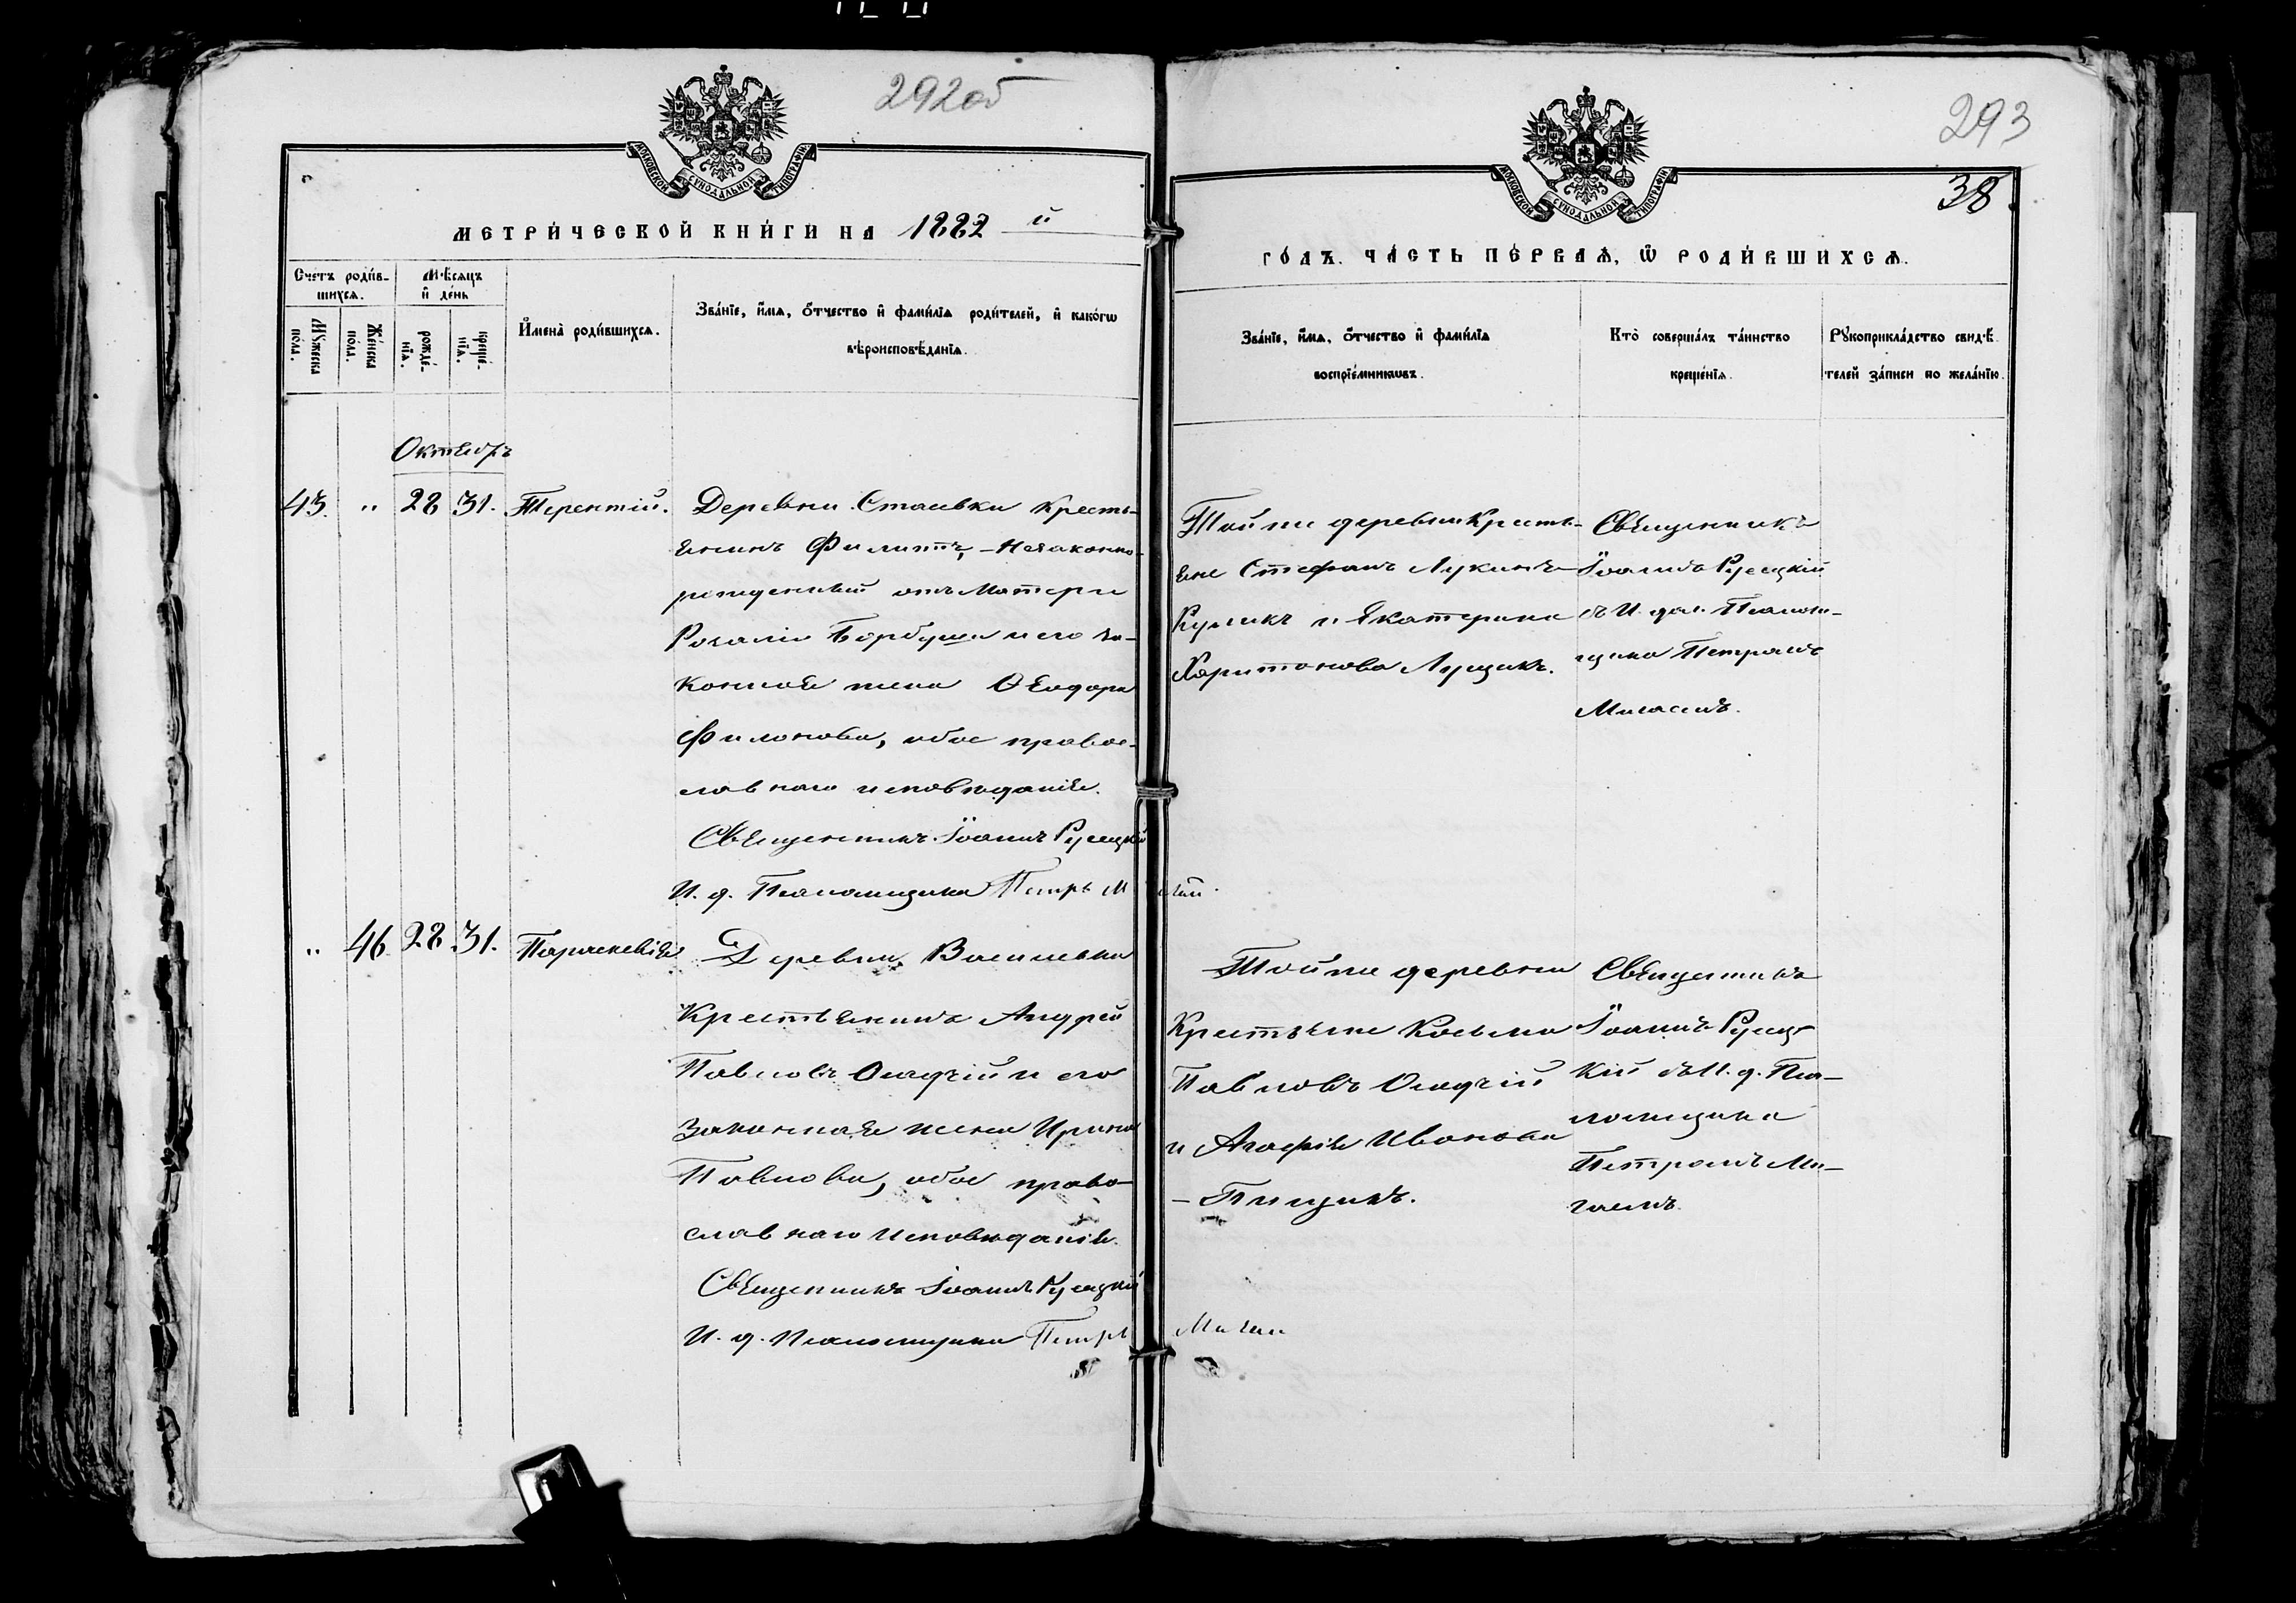 292об
МОСКОВСКОЙ СѴНОДАЛЬНОЙ ТИПОГРАФІИ
МЕТРИ́ЧЕСКОЙ КНИ́ГИ НА 1882 й
Сче́тъ роди́в-
шихсѧ.
Мѣ́сяцъ
и҆ де́нь
Мꙋ́жеска
по́ла.
Же́нска
по́ла.
рожде́-
нїѧ.
креще́-
нїѧ.
И҆мена̀ роди́вшихсѧ.
Зва́нїе, и҆́мѧ, ѻ҆́тчество и҆ фами́лїѧ роди́телей, и҆ како́гѡ
вѣроисповѣ́данїѧ.
Октябрь
43. " 28 31. Терентій. Деревни Стаевки кресть-
янинъ Филиппъ, Незаконно-
рожденный отъ матери
Розаліи Борбуши и его за-
конная жена Ѳеодора
Филонова, обое правос-
лавнаго исповѣданія.
Священникъ Іоаннъ Русецкій
И. д. Псаломщика Петръ
" 46 28 31. Параскевія Деревни Васильевки
Крестьянинъ Андрей
Павловъ и его
законная жена Ирина
Павлова, обое право-
славнаго исповѣданія.
Священникъ Іоаннъ Русецкій
И. д. Псаломщика Петръ
293
38
МОСКОВСКОЙ СѴНОДАЛЬНОЙ ТИПОГРАФІИ
ГО́ДЪ. ЧА́СТЬ ПЕ́РВАѦ, Ѡ҆ РОДИ́ВШИХСѦ.
Зва́нїе, и҆́мѧ, ѻ҆́тчество и҆ фами́лїѧ
воспрїе́мникѡвъ.
Кто̀ соверша́лъ та́инство
креще́нїѧ.
Рꙋкоприкла́дство свидѣ́-
телей за́писи по жела́нїю.
Той же деревни Кресть-
яне Стефанъ Лукинъ
Куликъ и Екатерина
Харитонова Лущикъ.
Священникъ
Іоаннъ Русецкій
съ И. дол. Псалом-
щика Петромъ
Той же деревни
Крестьяне Косьма
Павловъ
и Агафія Иванова
Священникъ
Іоаннъ Русец-
кій съ И. д. Пса-
ломщика
Петромъ